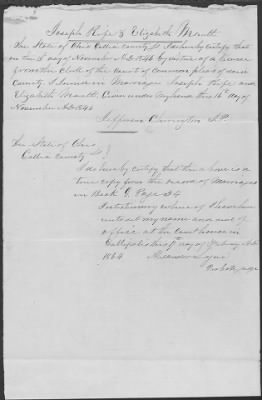 Joseph Rife & Elizabeth
The State of Ohio Gallia County I do hereby certify that
on the 5 day of November A.D. 1846 by virtue of a license
from the Clerk of the Court of common pleas of said
County I Joined in Marriage Joseph Rife and
Elizabeth Given under my hand this 16th day of
November A.D. 1846
Jefferson Cherington J.P.
The State of Ohio
Gallia County
I do hereby certify that the above is a
true copy from the record of Marriages
in Book Page 34
In testimony whereof I have here
unto set my name and seal of
office at the court house in
Gallipolis this day of A.D.
1864
Alexander
Probate Judge